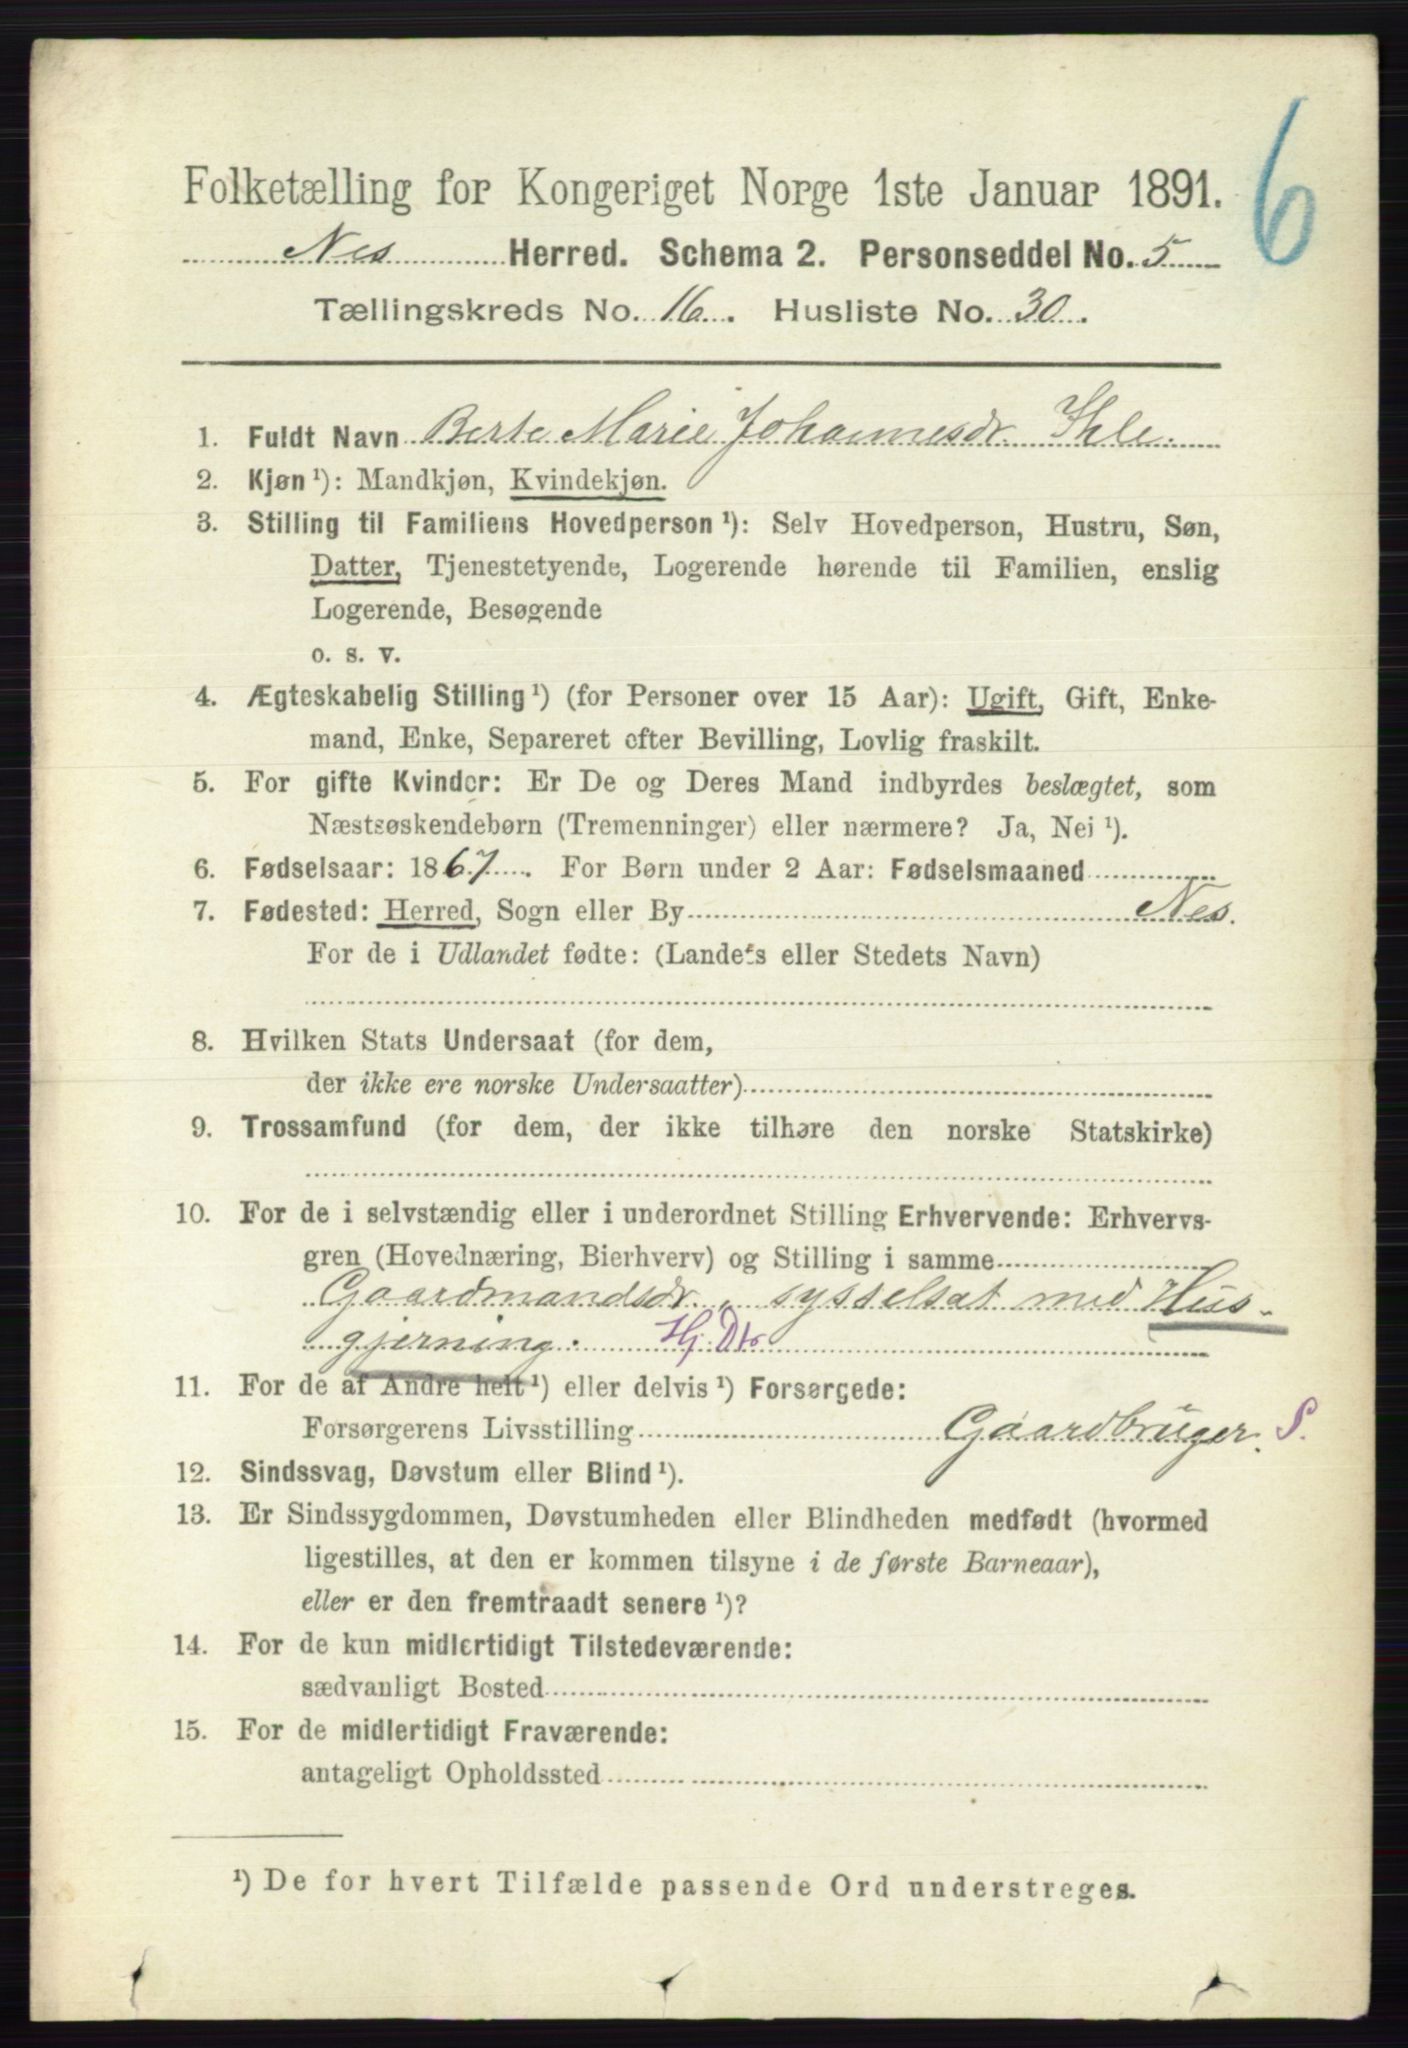 6
Folketælling for Kongeriget Norge 1ste Januar 1891.
Nes Herred. Schema 2. Personseddel No. 5
Tællingskreds No. 16. Husliste No. 30.
1. Fuldt Navn Berte Marie Johannesdr. Ihle.
2. Kjøn ¹): Mandkjøn, Kvindekjøn.
3. Stilling til Familiens Hovedperson ¹): Selv Hovedperson, Hustru, Søn,
Datter, Tjenestetyende, Logerende hørende til Familien, enslig
Logerende, Besøgende
o. s. v.
4. Ægteskabelig Stilling ¹) (for Personer over 15 Aar): Ugift, Gift, Enke-
mand, Enke, Separeret efter Bevilling, Lovlig fraskilt.
5. For gifte Kvinder: Er De og Deres Mand indbyrdes beslægtet, som
Næstsøskendebørn (Tremenninger) eller nærmere? Ja, Nei ¹).
6. Fødselsaar: 1867. For Børn under 2 Aar: Fødselsmaaned
7. Fødested: Herred, Sogn eller By Nes.
For de i Udlandet fødte: (Landets eller Stedets Navn)
8. Hvilken Stats Undersaat (for dem,
der ikke ere norske Undersaatter)
9. Trossamfund (for dem, der ikke tilhøre den norske Statskirke)
10. For de i selvstændig eller i underordnet Stilling Erhvervende: Erhvervs-
gren (Hovednæring, Bierhverv) og Stilling i samme
Gaardmandsdr., sysselsat med Hus-
gjerning. Hj. Dtr
11. For de af Andre helt ¹) eller delvis ¹) Forsørgede:
Forsørgerens Livsstilling Gaardbruger. S.
12. Sindssvag, Døvstum eller Blind ¹).
13. Er Sindssygdommen, Døvstumheden eller Blindheden medfødt (hvormed
ligestilles, at den er kommen tilsyne i de første Barneaar),
eller er den fremtraadt senere ¹)?
14. For de kun midlertidigt Tilstedeværende:
sædvanligt Bosted
15. For de midlertidigt Fraværende:
antageligt Opholdssted
¹) De for hvert Tilfælde passende Ord understreges.